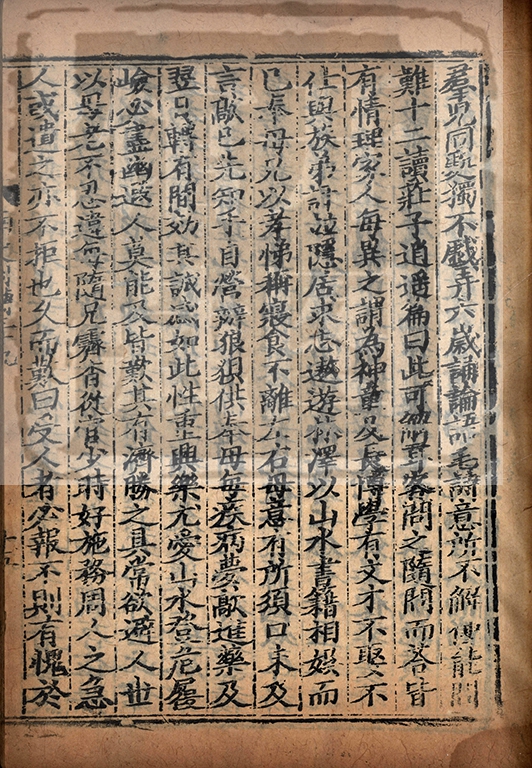 羣兒同處獨不戲弄六歲誦論語毛詩意所不解便能問
難十二讀莊子逍遥篇曰此可解耳客問之隨問而答皆
有情理家人每異之謂為神童及長博學有文才不娶不
仕與族弟訏並隱居求志遨遊林澤以山水書籍相娛而
已奉母兄以孝悌稱寢食不離左右母意有所須口未及
言歊已先知手自營辦狼狽供奉母每疾病夢歊進藥及
翌日轉有間効其誠感如此性重興樂尤愛山水登危履
嶮必盡幽遐人莫能及皆歎其有濟勝之具常欲避人世
以母老不忍違每隨兄霽杳從宦少時好施務周人之急
人或遺之亦不拒也久而歎曰受人者必報不則有愧於